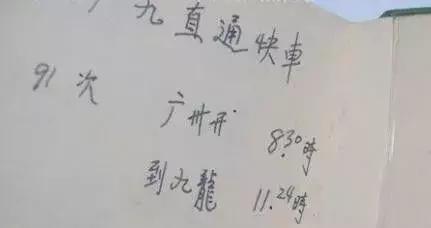 广九直通快車
91次
广州开 8.30時
到九龍 11.24時